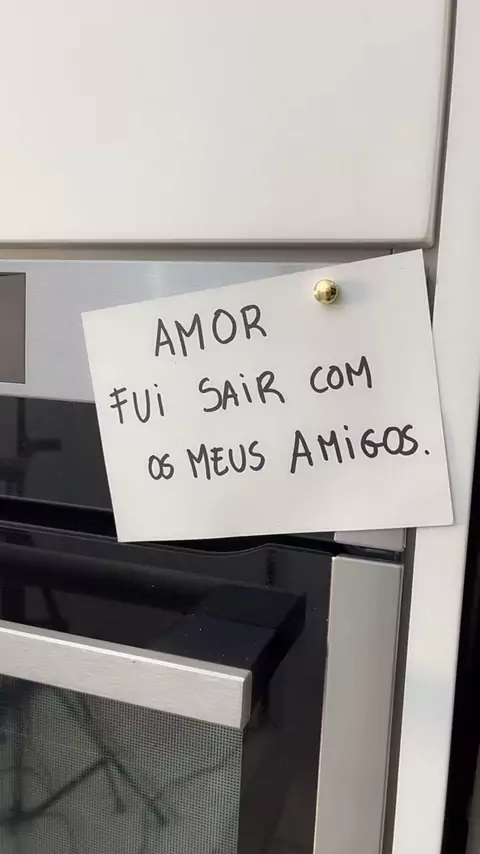 AMOR
FUi SAiR COM
OS MEUS AMiGOS.